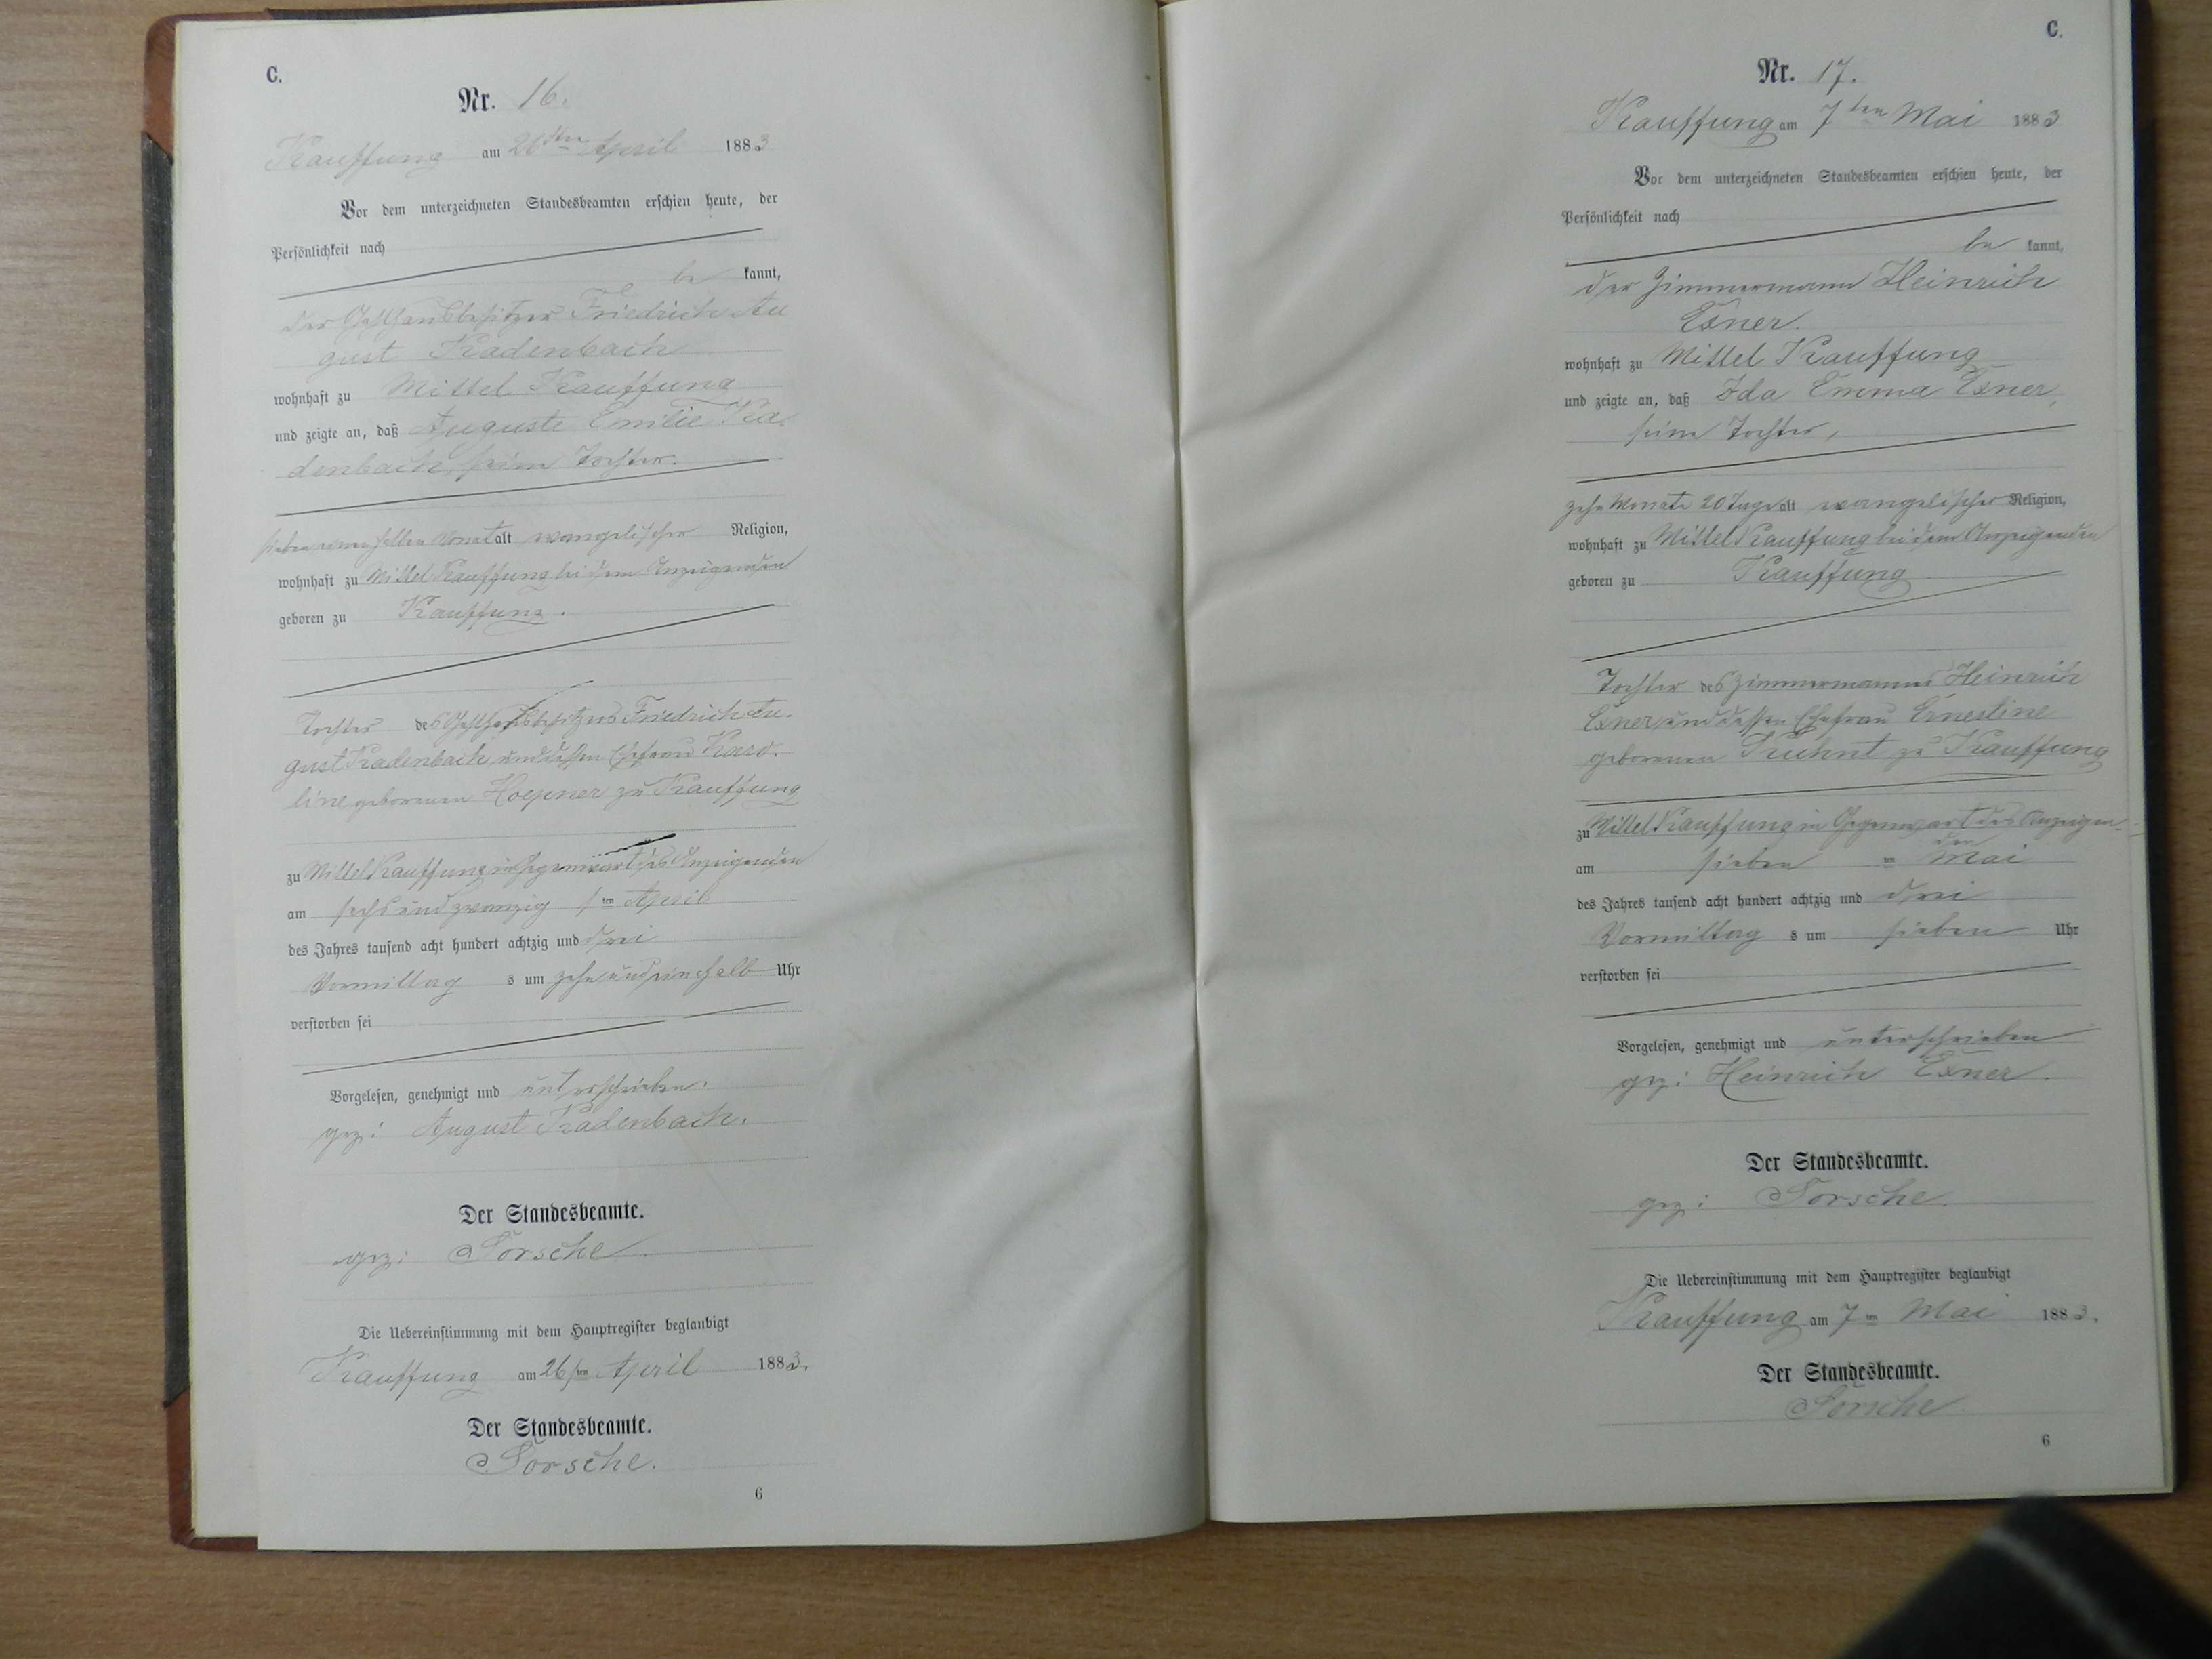 C.
Nr. 16.
Kauffung am 26sten April 1883
Vor dem unterzeichneten Standesbeamten erschien heute, der
Persönlichkeit nach
be kannt,
der Gasthausbesitzer Friedrich Au
gust Radenbach
wohnhaft zu Mittel Kauffung
und zeigte an, daß Auguste Emilie Ra-
denbach, seine Tochter.
sieben einen halben Monat alt evangelischer Religion,
wohnhaft zu Mittel Kauffung bei dem Anzeigenden
geboren zu Kauffung.
Tochter des Gasthausbesitzers Friedrich Au-
gust Radenbach und dessen Ehefrau Karo-
line geborenen Hoepner zu Kauffung
zu Mittel Kauffung in Gegenwart des Anzeigenden
am sechs und zwanzig sten April
des Jahres tausend acht hundert achtzig und drei
Vormittag s um zehn und einhalb Uhr
verstorben sei
Vorgelesen, genehmigt und unterschrieben.
gez: August Radenbach.
Der Standesbeamte.
gez: Forsche.
Die Uebereinstimmung mit dem Hauptregister beglaubigt
Kauffung am 26sten April 1883.
Der Standesbeamte.
Forsche.
6
C.
Nr. 17.
Kauffung am 7ten Mai 1883
Vor dem unterzeichneten Standesbeamten erschien heute, der
Persönlichkeit nach
be kannt,
der Zimmermann Heinrich
Exner.
wohnhaft zu Mittel Kauffung
und zeigte an, daß Ida Emma Exner,
seine Tochter,
zehn Monate 20 Tage alt evangelischer Religion,
wohnhaft zu Mittel Kauffung bei dem Anzeigenden
geboren zu Kauffung
Tochter des Zimmermanns Heinrich
Exner und dessen Ehefrau Ernestine
geborenen Kuhnt zu Kauffung
zu Mittel Kauffung in Gegenwart des Anzeigen-
den
am sieben ten Mai
des Jahres tausend acht hundert achtzig und drei
Vormittag s um sieben Uhr
verstorben sei
Vorgelesen, genehmigt und unterschrieben
gez: Heinrich Exner.
Der Standesbeamte.
gez: Forsche.
Die Uebereinstimmung mit dem Hauptregister beglaubigt
Kauffung am 7ten Mai 1883.
Der Standesbeamte.
Forsche.
6